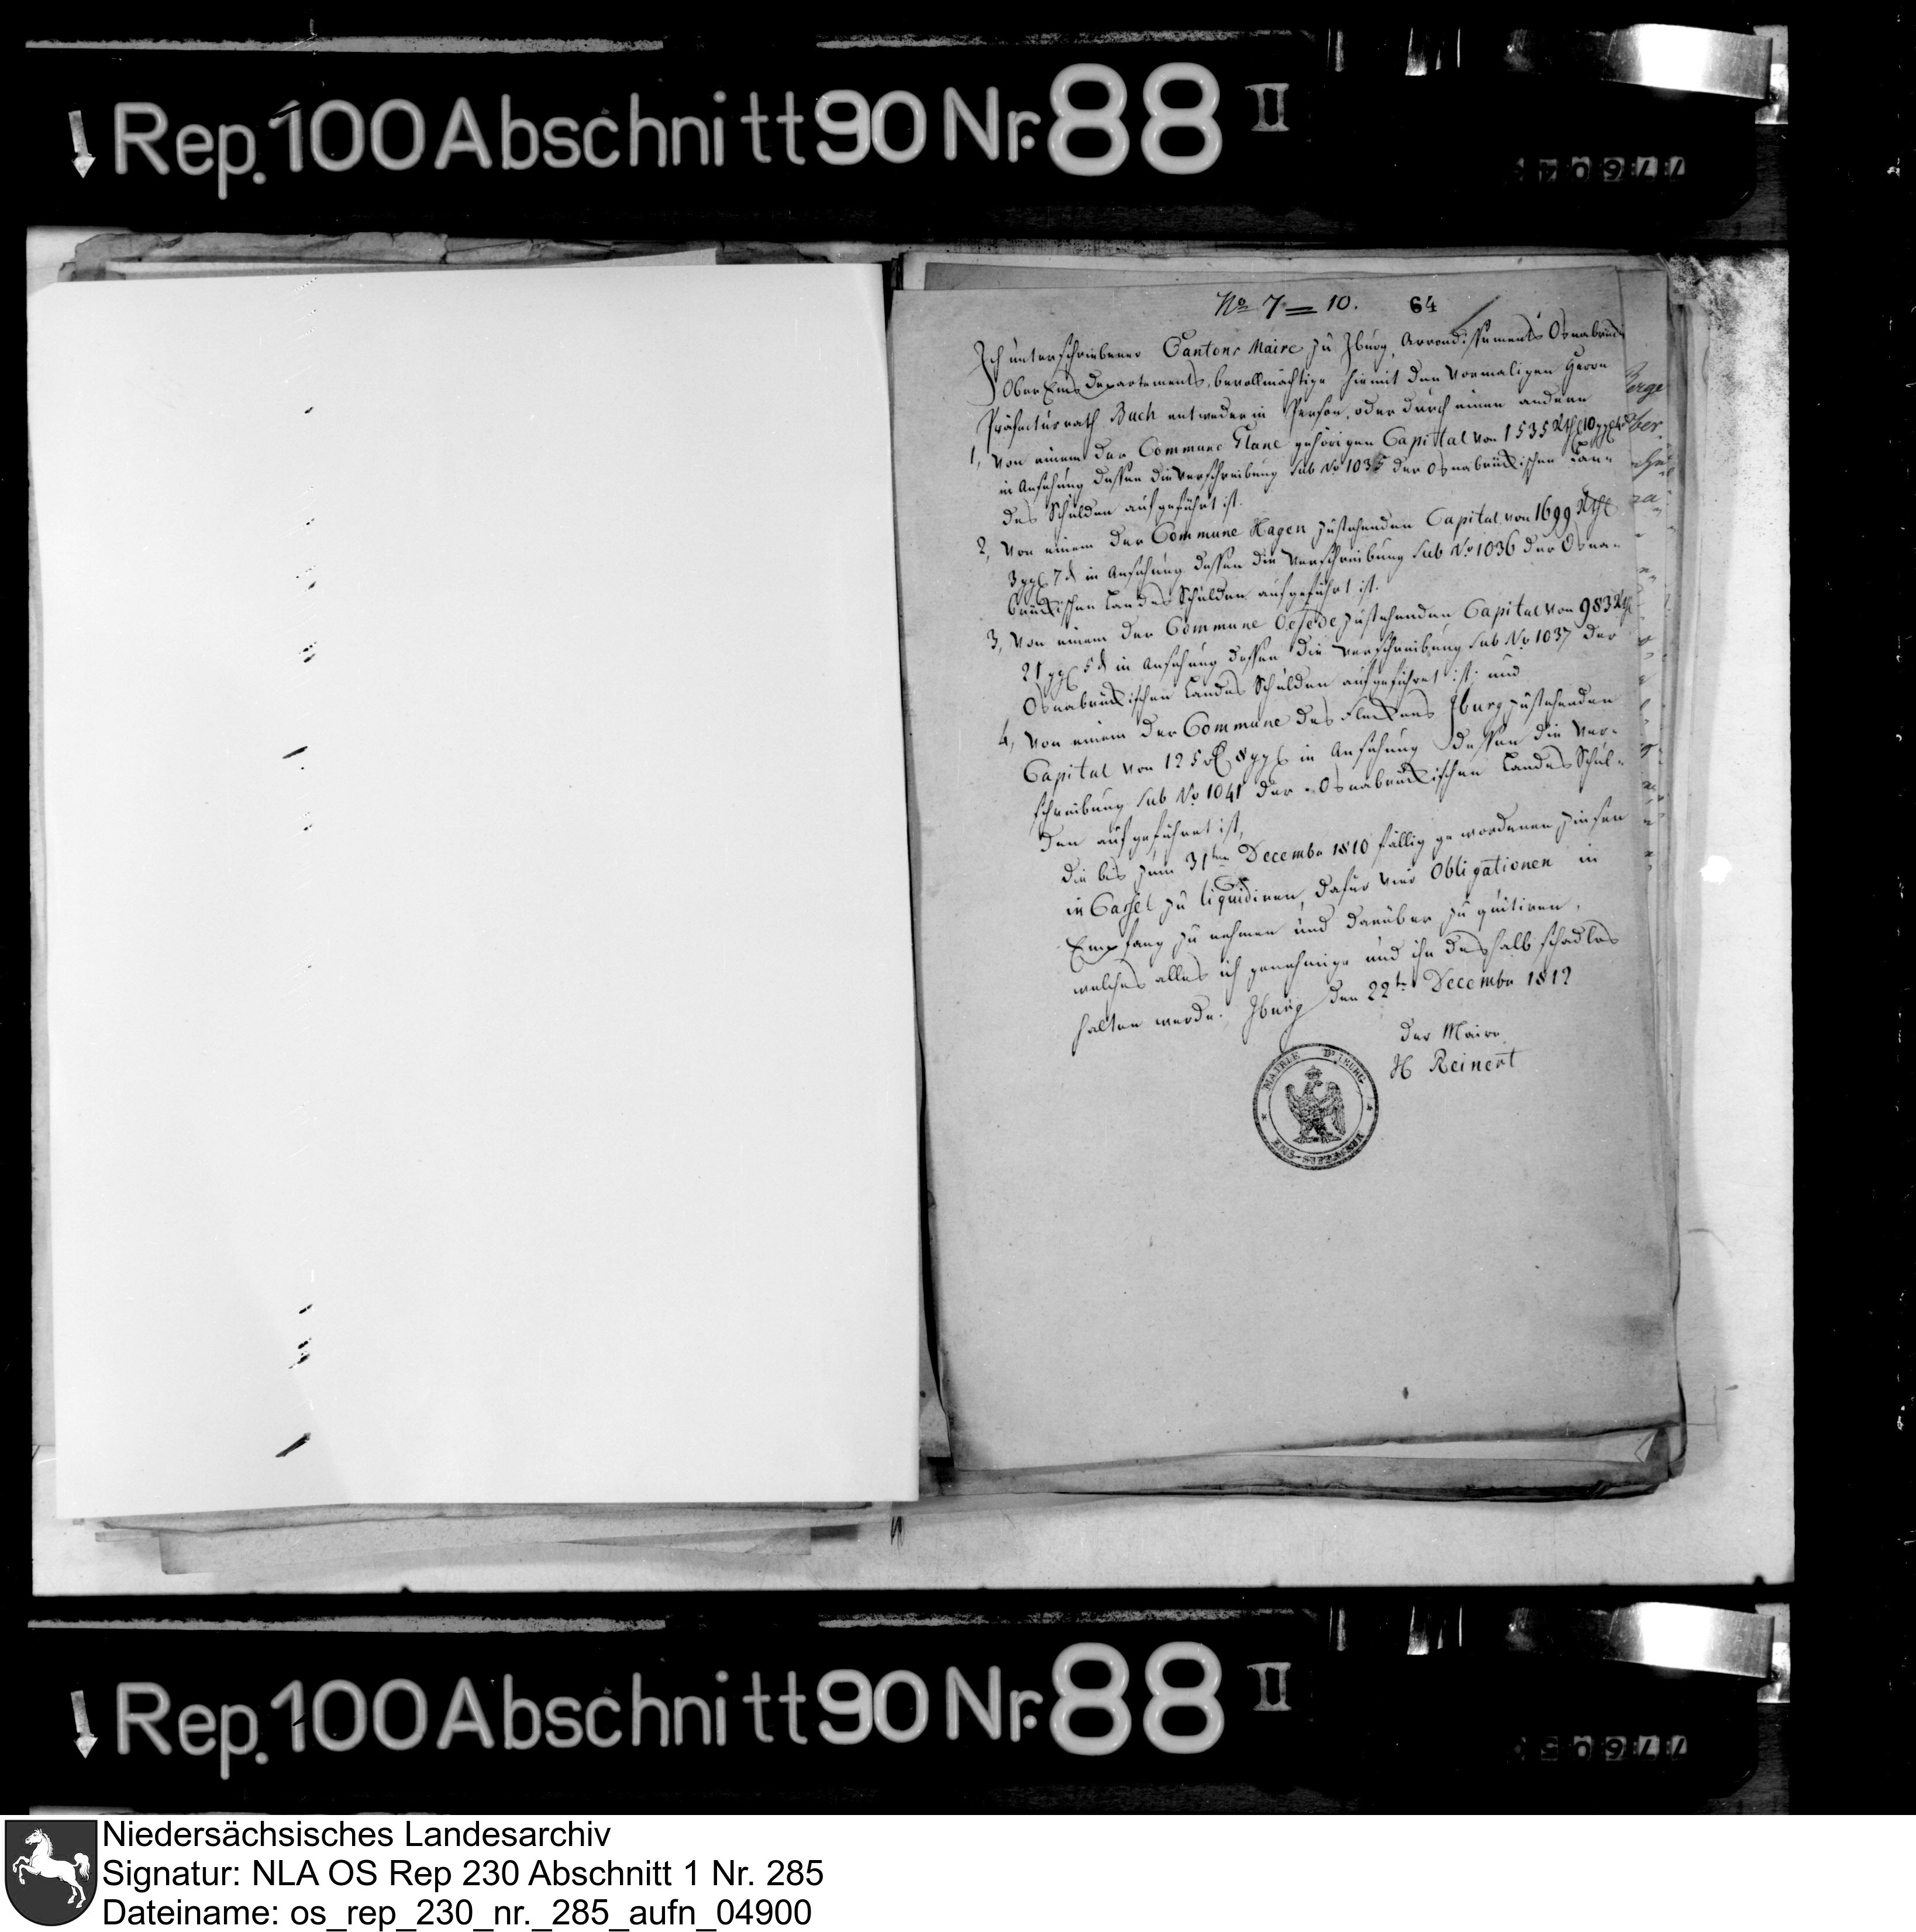 Rep. 100 Abschnitt 90 Nr. 88 II
No 7 = 10. 64
Ich unterschriebener Cantons Maire zu Iburg, Arrondissements Osnabrück
Ober Ems Departements, bevollmächtige hiemit den vormaligen Herrn
Präfecturrath Buch entweder in Person, oder durch einen andern
1, Von einem der Commune Glane gehörigen Capital von 1535 Rthl 10 ggl 4 d
in Ansehung dessen die Verschreibung sub No 1035 der Osnabrückischen Lan-
des Schulden aufgeführt ist.
2, Von einem der Commune Hagen zustehenden Capital von 1699 Rthl
3 ggl 7 d in Ansehung dessen die Verschreibung sub No 1036 der Osna-
brückischen Landes Schulden aufgeführt ist.
3, Von einem der Commune Oesede zustehenden Capital von 983 Rthl
21 ggl 5 d in Ansehung dessen die Verschreibung sub No 1037 der
Osnabrückischen Landes Schulden aufgeführet ist; und
4, Von einem der Commune des Fleckens Iburg zustehenden
Capital von 125 rl 8 ggl in Ansehung dessen die Ver-
schreibung sub No 1041 der Osnabrückischen Landes Schul-
den aufgeführet ist,
die bis zum 31ten Decembr 1810 fällig gewordenen Zinsen
in Cassel zu liquidiren, dafür vier Obligationen in
Empfang zu nehmen und darüber zu quitiren,
welches alles ich genehmige und ihn deshalb schadlos
halten werde. Iburg den 22ten Decembr 1812
der Maire
H Reinert
MAIRIE D'IBURG
EMS-SUPERIEUR
Rep. 100 Abschnitt 90 Nr. 88 II
Niedersächsisches Landesarchiv
Signatur: NLA OS Rep 230 Abschnitt 1 Nr. 285
Dateiname: os_rep_230_nr._285_aufn_04900